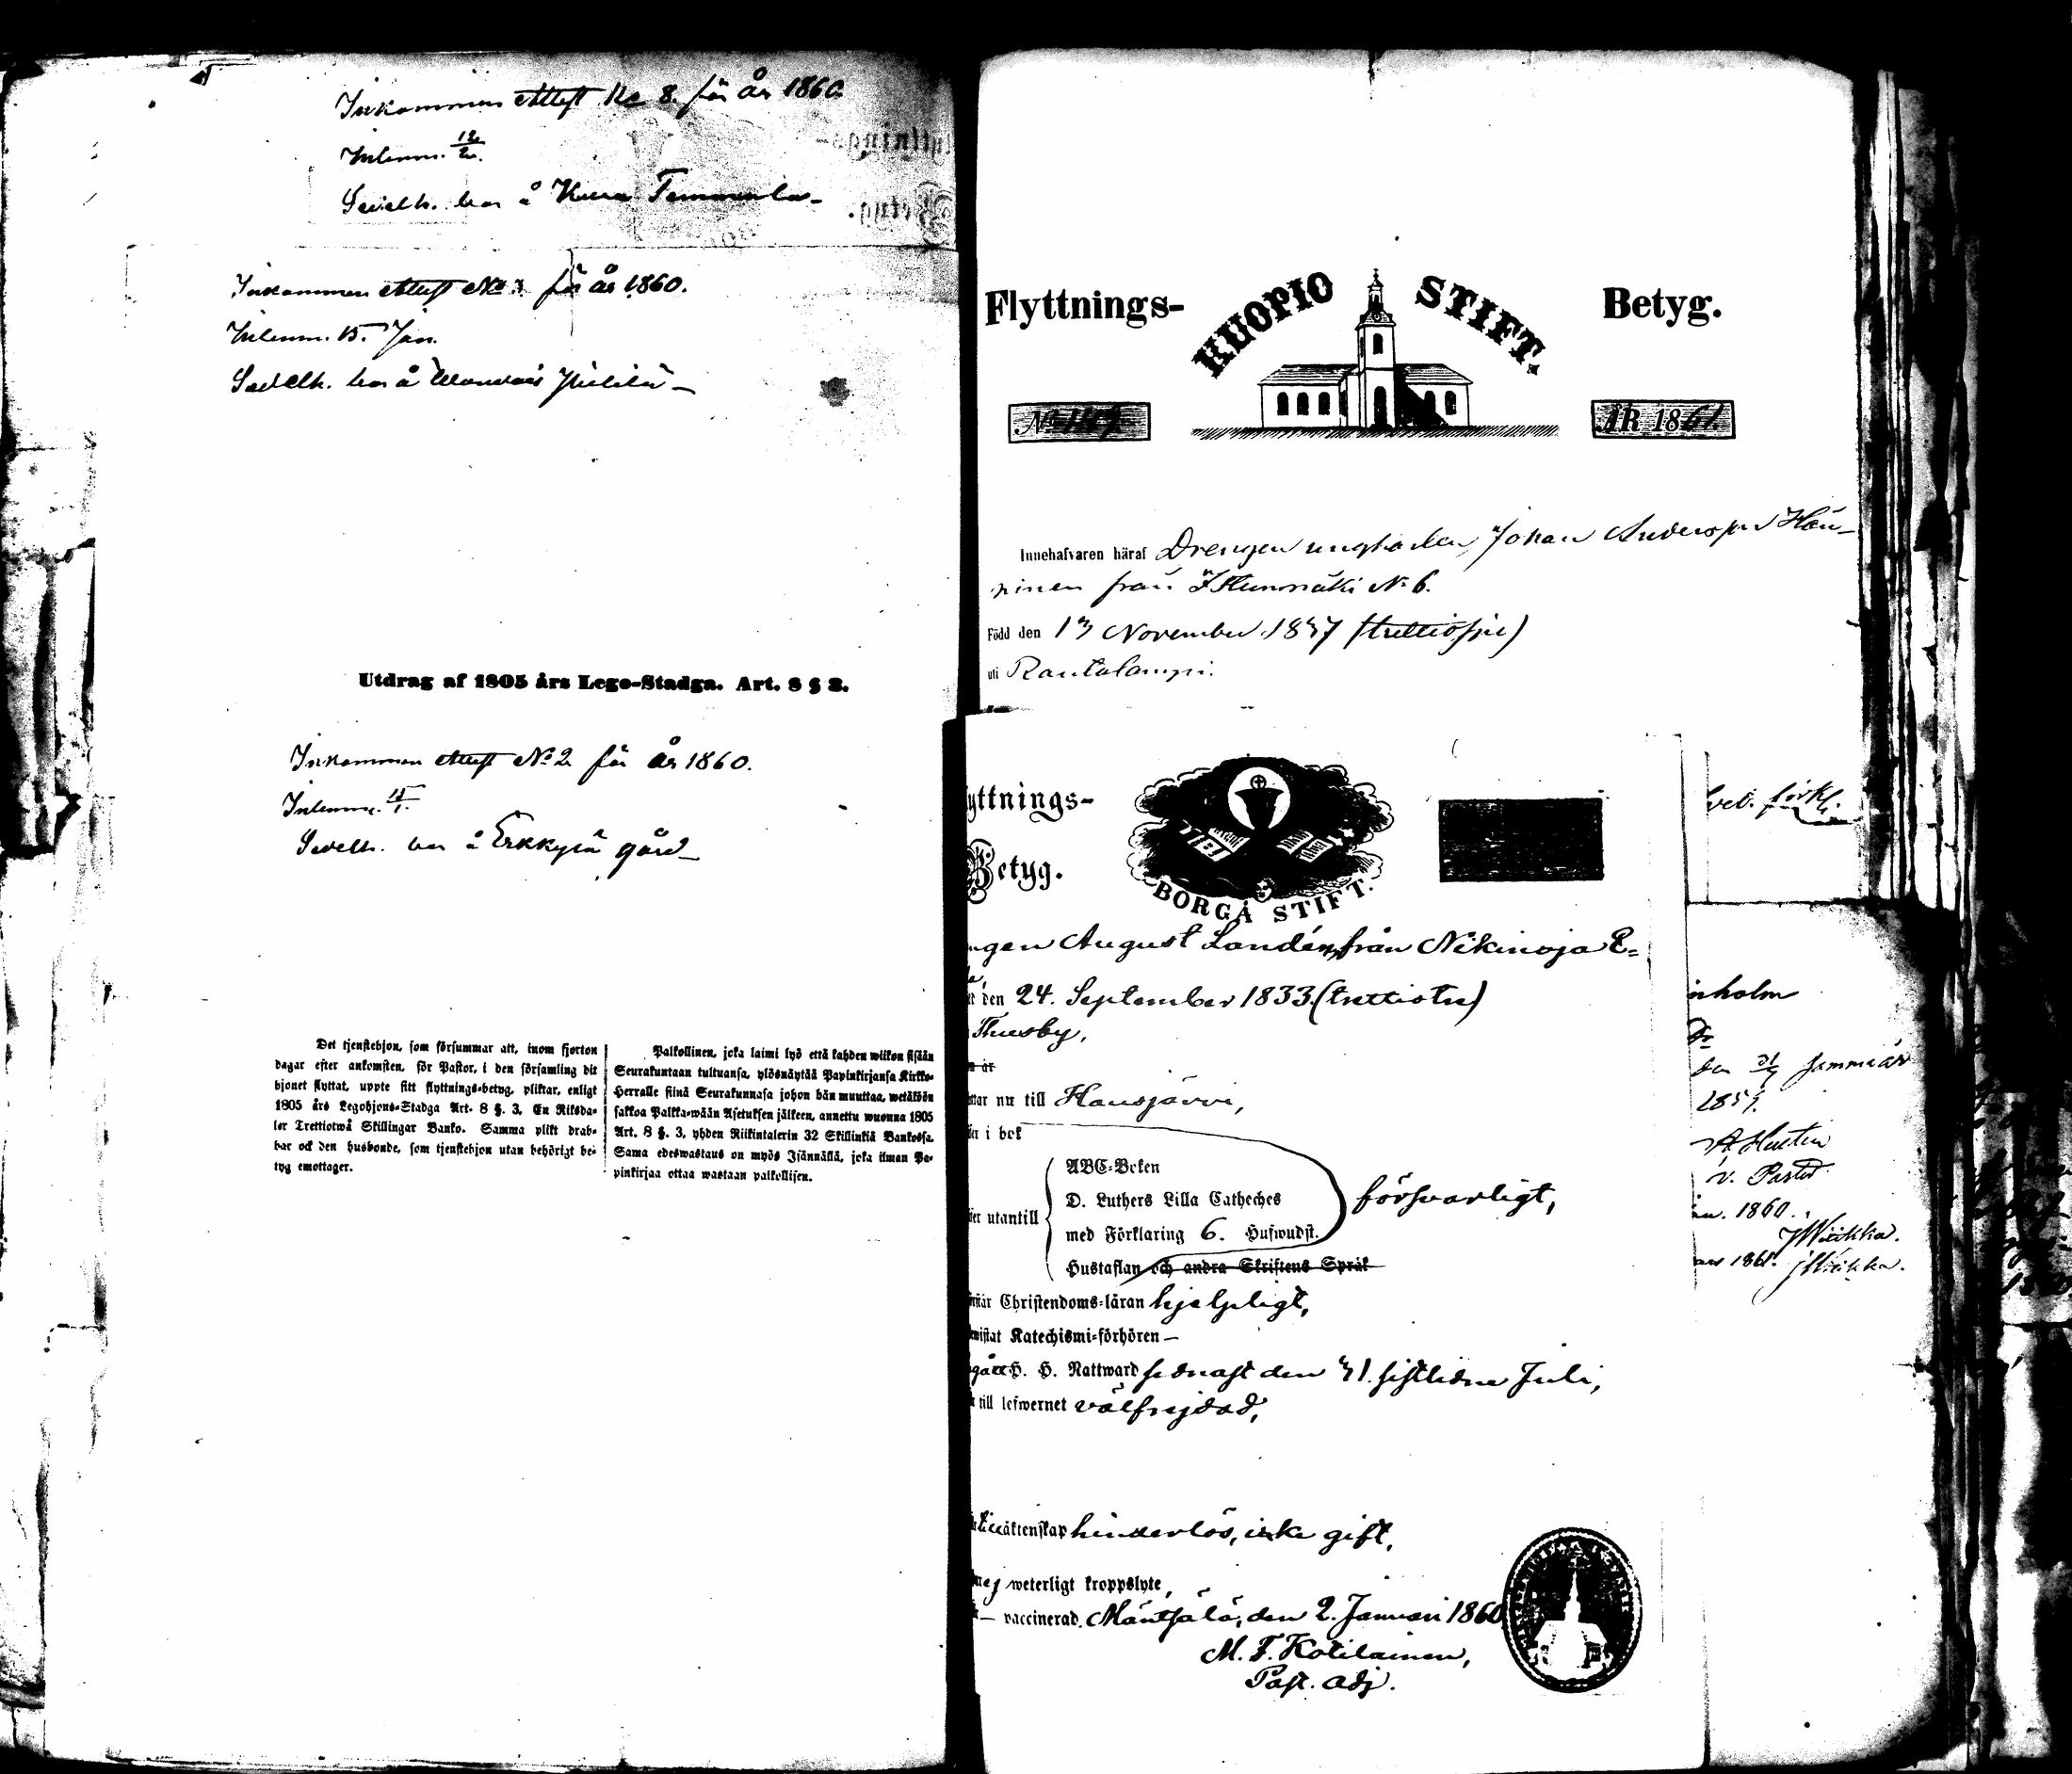 Inkommen attest No 8. för år 1860.
Inlemn. 12/2.
Sedelh. bor å
Inkommen attest No 3 för år 1860.
Inlemn. 15. Jan.
Sedelh. bor å
Utdrag af 1805 års Lego-Stadga. Art. 8 § 3.
Inkommen attest No 2 för år 1860.
Inlemn. 15/1.
Sedelh. bor å Erkkylä gård
Det tjenstehjon, som försummar att, inom fjorton
dagar efter ankomsten, för Pastor, i den församling dit
hjonet flyttat, uppte sitt flyttnings-betyg, pliktar, enligt
1805 års Legohjons-Stadga Art. 8 §. 3, En Riksda-
ler Trettiotwå Skillingar Banko. Samma plikt drab-
bar ock den husbonde, som tjenstehjon utan behörigt be-
tyg emottager.
Palkollinen, joka laimi lyö että kahden wiikon sisään
Seurakuntaan tultuansa, ylösnäytää Papinkirjansa Kirkko-
Herralle siinä Seurakunnasa johon hän muuttaa, wetäköön
sakkoa Palkka-wään Asetuksen jälkeen, annettu wuonna 1805
Art. 8 §. 3, yhden Riikintalerin 32 Skillinkiä Bankossa.
Sama edeswastaus on myös Isännällä, joka ilman Pa-
pinkirjaa ottaa wastaan palkollisen.
Flyttnings- KUOPIO STIFT. Betyg.
ÅR 1861.
Innehafvaren häraf Drengen Johan Andersson Hän-
ninen från No 6.
Född den 13 November 1837 (trettiosju)
uti Rautalampi.
yttnings-
Betyg.
BORGÅ STIFT.
ngen August Landén, från Nikinoja E=
den 24. September 1833. (trettiotre)
Thusby,
ttar nu till Hausjärvi,
er i bok
er utantill
ABC-Boken
D. Luthers Lilla Catheches
med Förklaring 6. Hufwudst.
Hustaflan och andra Skriftens Språk
försvarligt,
Christendoms-läran hjelpligt,
wistat Katechismi-förhören —
H. H. Nattward sednast den 31. sistlidne Juli,
till lefwernet välfrejdad,
äktenskap hinderlös, icke gift,
ej weterligt kroppslyte,
— vaccinerad. Mäntsälä, den 2. Januari 1860
M. F. Kotilainen,
Past. adj.
förkl.
nholm
den
v. Pastor
1860.